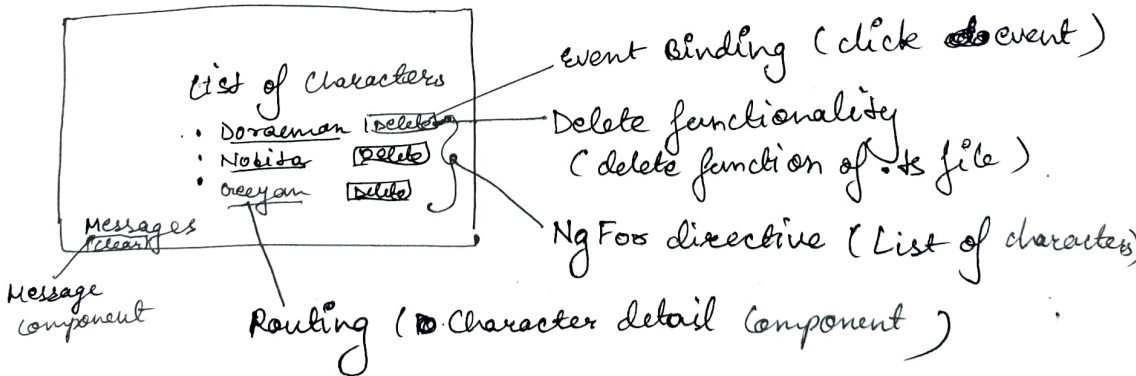 List of Characters
• Doraeman Delete
• Nobita Delete
• Geeyan Delete
Messages
Clear
Message
Component
Event Binding (click event)
Delete functionality
(delete function of .ts file)
NgFor directive (List of characters)
Routing (Character detail Component)